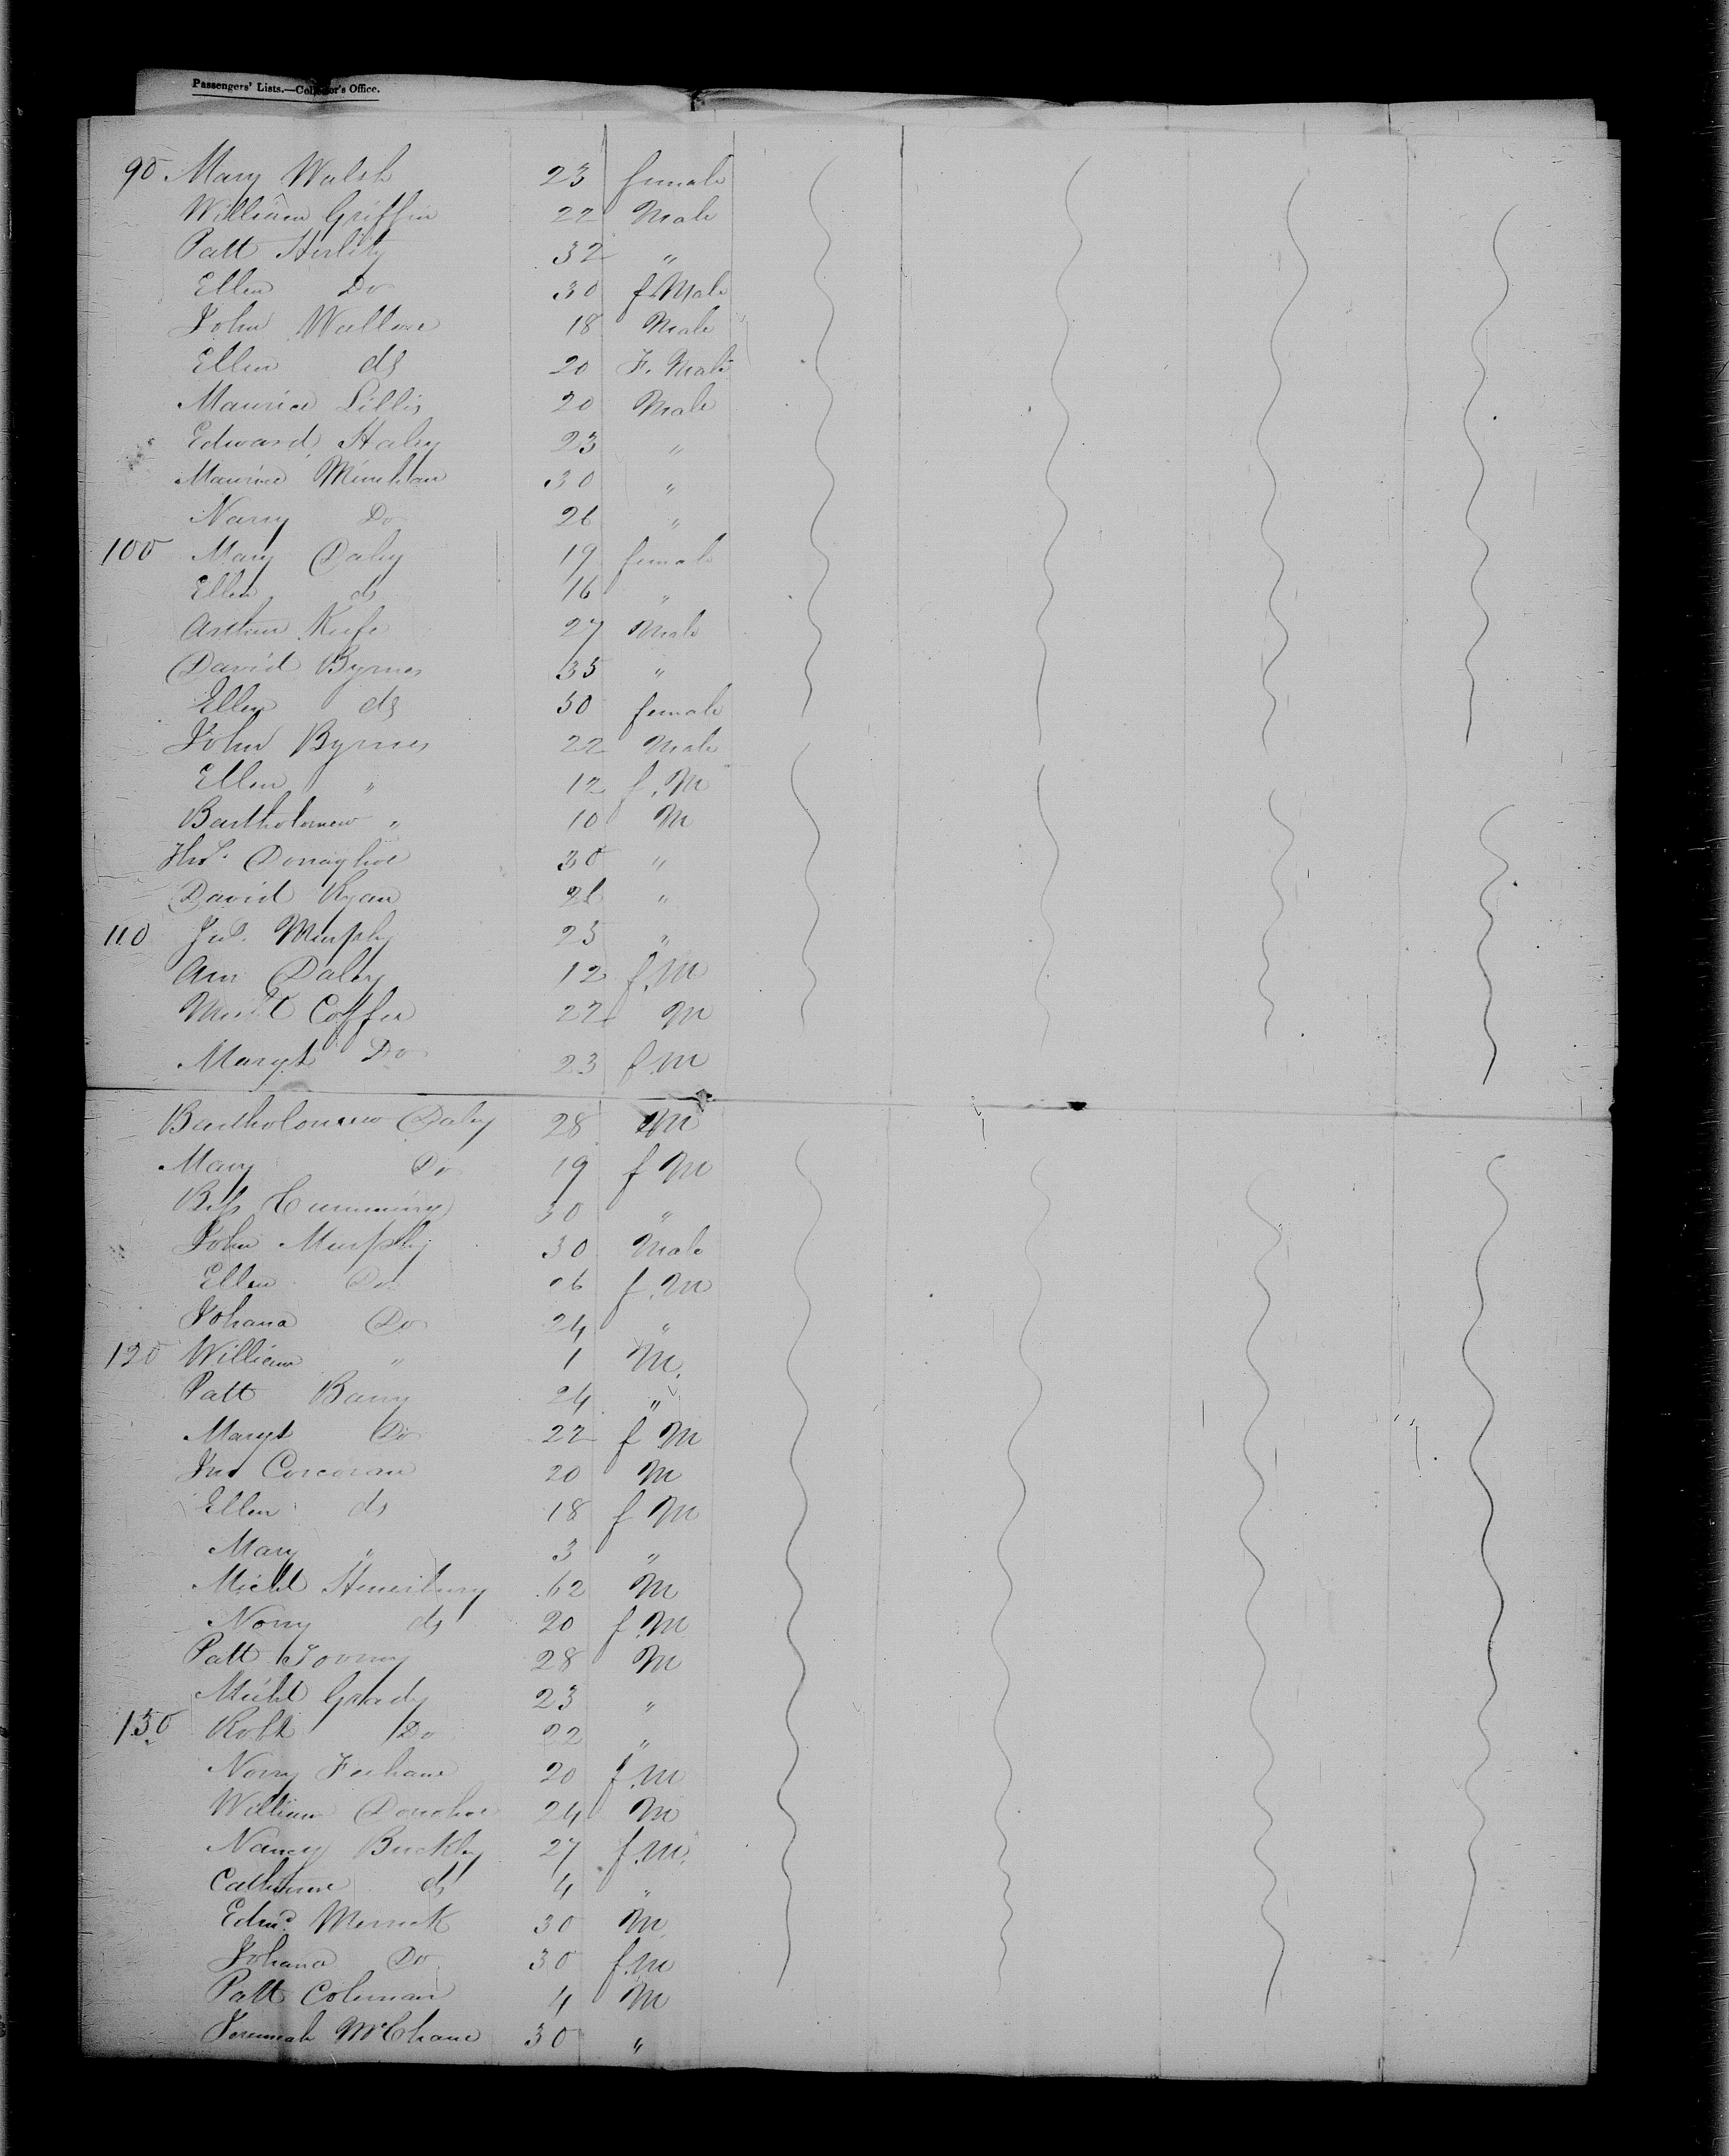 Passengers' Lists.—Collector's Office.
90 Mary Walsh 23 female
William Griffin 22 Male
Patt Herlity 32 "
Ellen Do 30 f.Male
John Wallace 18 Male
Ellen do 20 F. Male
Maurice Lillis 20 Male
Edward Haley 23 "
Maurice Minehan 30 "
Nany Do 26 "
100 Mary Daley 19 female
Ellen do 16 "
Arthur Keefe 27 Male
David Byrnes 35 "
Ellen do 30 female
John Byrnes 22 Male
Ellen " 12 f.M
Bartholomew " 10 M
Thos. Donaghoe 30 "
David Ryan 26 "
110 Jno. Murphy 25 "
Ann Daley 12 f.M
Coffee 22 M
Margt Do 23 f.M
Bartholomew Daley 28 M
Mary Do 19 f M
Bess Cumming 30 "
John Murphy 30 Male
Ellen Do 26 f.M
Johana Do 24 "
120 William " 1 M.
Patt Barry 24 "
Margt Do 22 f M
Jno Corcoran 20 M
Ellen do 18 f M
Mary " 3 "
Michl 62 M
Norry do 20 f.M
Patt 28 M
Michl Grady 23 "
130 Robt Do 22 "
Norry Feehane 20 f.M
William Donohoe 24 M
Nancy Buckley 27 f.M.
Catherine do 4 "
Edmd. Merrick 30 M.
Johana Do 30 f.M
Patt Coleman 4 M
Jeremiah McChane 30 "